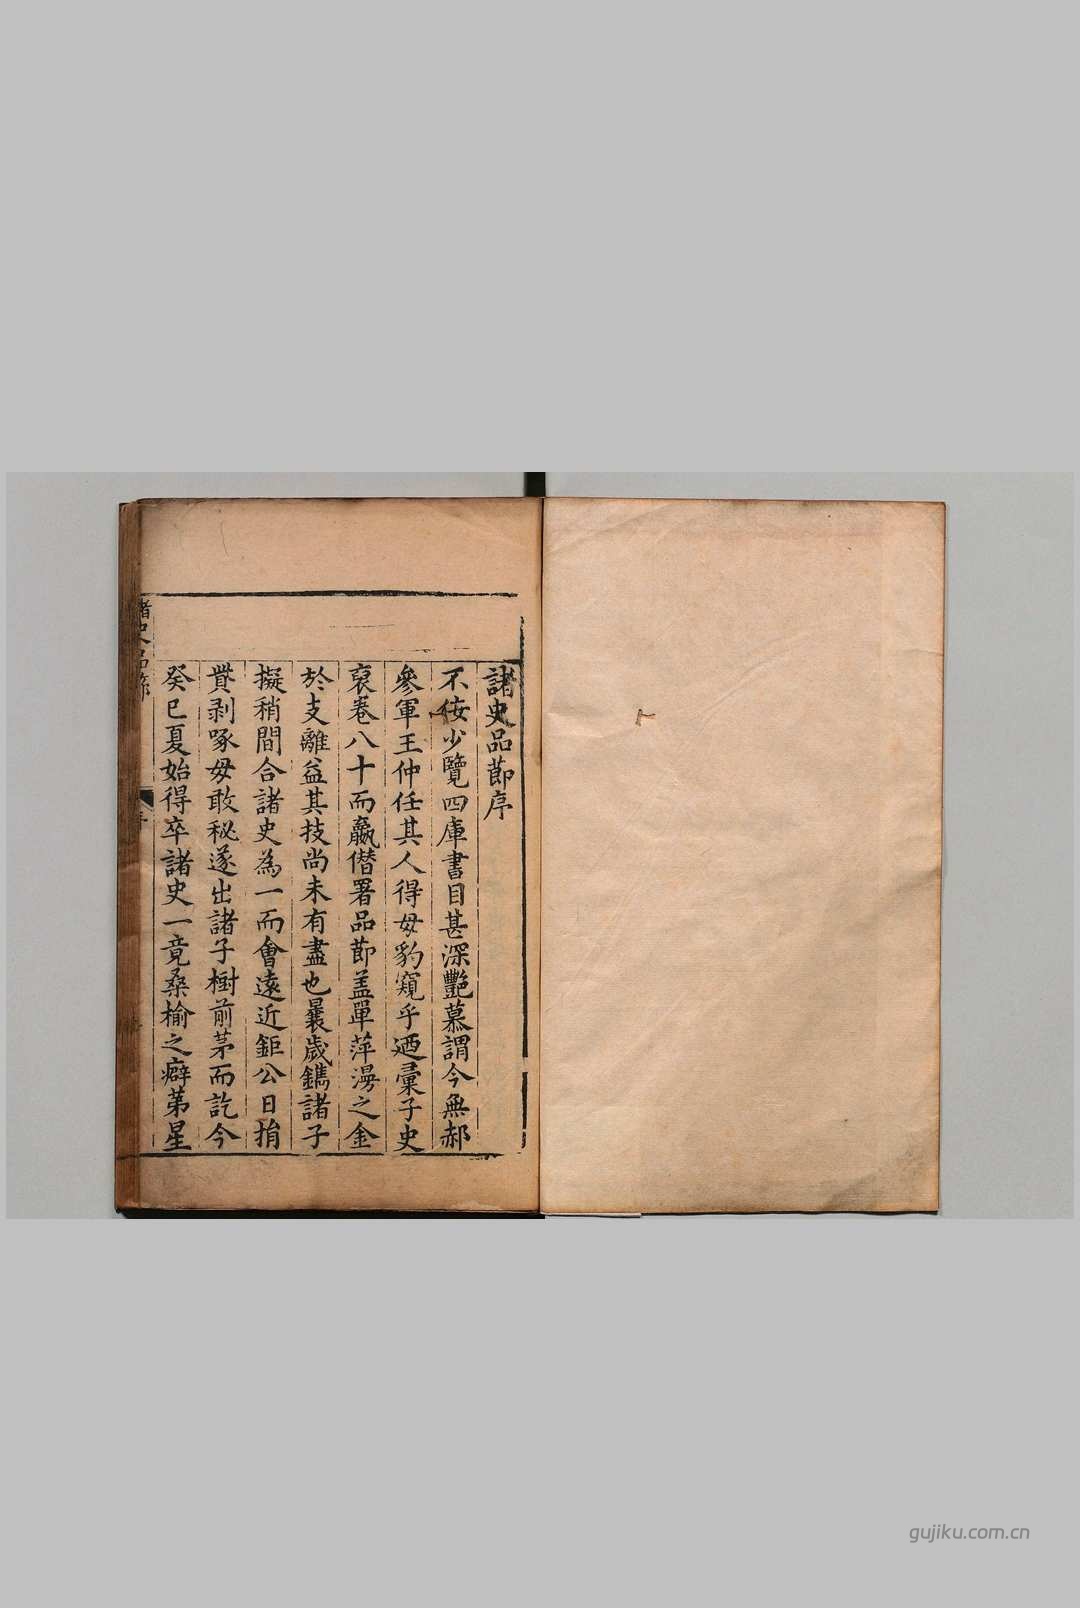 諸史品節序
不佞少覽四庫書目甚深艷慕謂今無郝
參軍王仲任其人得毋豹窺乎廼彚子史
裒卷八十而羸僭署品節盖單萍漫之金
於支離益其技尚未有盡也曩歲鐫諸子
擬稍間合諸史為一而會遠近鉅公日捐
貲剥啄毋敢秘遂出諸子樹前茅而訖今
癸巳夏始得卒諸史一竟桑榆之癖苐星
諸史品節
gujiku.com.cn